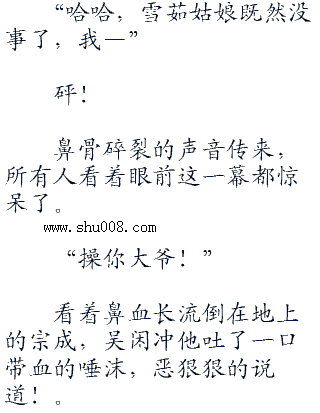 “哈哈，雪茹姑娘既然没
事了，我—”
砰！
鼻骨碎裂的声音传来，
所有人看着眼前这一幕都惊
呆了。
www.shu008.com
“操你大爷！”
看着鼻血长流倒在地上
的宗成，吴闲冲他吐了一口
带血的唾沫，恶狠狠的说
道！。